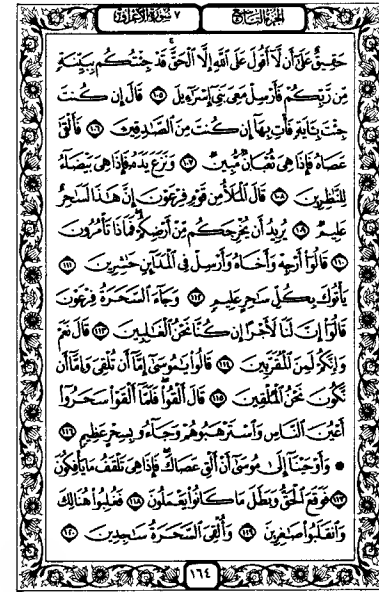 الجزء التاسع
٧ سورة الأعراف
حَقِيقٌ عَلَىٰٓ أَن لَّآ أَقُولَ عَلَى ٱللَّهِ إِلَّا ٱلْحَقَّ قَدْ جِئْتُكُم بِبَيِّنَةٍ
مِّن رَّبِّكُمْ فَأَرْسِلْ مَعِىَ بَنِىٓ إِسْرَٰٓءِيلَ ١٠٥ قَالَ إِن كُنتَ
جِئْتَ بِـَٔايَةٍ فَأْتِ بِهَآ إِن كُنتَ مِنَ ٱلصَّٰدِقِينَ ١٠٦ فَأَلْقَىٰ
عَصَاهُ فَإِذَا هِىَ ثُعْبَانٌ مُّبِينٌ ١٠٧ وَنَزَعَ يَدَهُۥ فَإِذَا هِىَ بَيْضَآءُ
لِلنَّٰظِرِينَ ١٠٨ قَالَ ٱلْمَلَأُ مِن قَوْمِ فِرْعَوْنَ إِنَّ هَٰذَا لَسَٰحِرٌ
عَلِيمٌ ١٠٩ يُرِيدُ أَن يُخْرِجَكُم مِّنْ أَرْضِكُمْ فَمَاذَا تَأْمُرُونَ
١١٠ قَالُوٓا۟ أَرْجِهْ وَأَخَاهُ وَأَرْسِلْ فِى ٱلْمَدَآئِنِ حَٰشِرِينَ ١١١
يَأْتُوكَ بِكُلِّ سَٰحِرٍ عَلِيمٍ ١١٢ وَجَآءَ ٱلسَّحَرَةُ فِرْعَوْنَ
قَالُوٓا۟ إِنَّ لَنَا لَأَجْرًا إِن كُنَّا نَحْنُ ٱلْغَٰلِبِينَ ١١٣ قَالَ نَعَمْ
وَإِنَّكُمْ لَمِنَ ٱلْمُقَرَّبِينَ ١١٤ قَالُوا۟ يَٰمُوسَىٰٓ إِمَّآ أَن تُلْقِىَ وَإِمَّآ أَن
نَّكُونَ نَحْنُ ٱلْمُلْقِينَ ١١٥ قَالَ أَلْقُوا۟ فَلَمَّآ أَلْقَوْا۟ سَحَرُوٓا۟
أَعْيُنَ ٱلنَّاسِ وَٱسْتَرْهَبُوهُمْ وَجَآءُو بِسِحْرٍ عَظِيمٍ ١١٦
وَأَوْحَيْنَآ إِلَىٰ مُوسَىٰٓ أَنْ أَلْقِ عَصَاكَ فَإِذَا هِىَ تَلْقَفُ مَا يَأْفِكُونَ
١١٧ فَوَقَعَ ٱلْحَقُّ وَبَطَلَ مَا كَانُوا۟ يَعْمَلُونَ ١١٨ فَغُلِبُوا۟ هُنَالِكَ
وَٱنقَلَبُوا۟ صَٰغِرِينَ ١١٩ وَأُلْقِىَ ٱلسَّحَرَةُ سَٰجِدِينَ ١٢٠
١٦٤